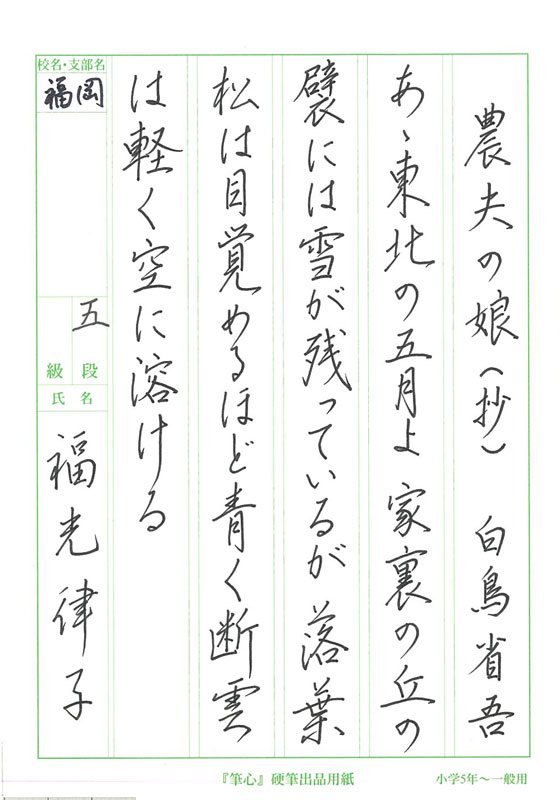 農夫の娘(抄) 白鳥省吾
あゝ東北の五月よ 家裏の丘の
襞には雪が残っているが 落葉
松は目覚めるほど青く断雲
は軽く空に溶ける
校名・支部名
福岡
五
級 段
氏名
福光律子
『筆心』硬筆出品用紙
小学5年～一般用